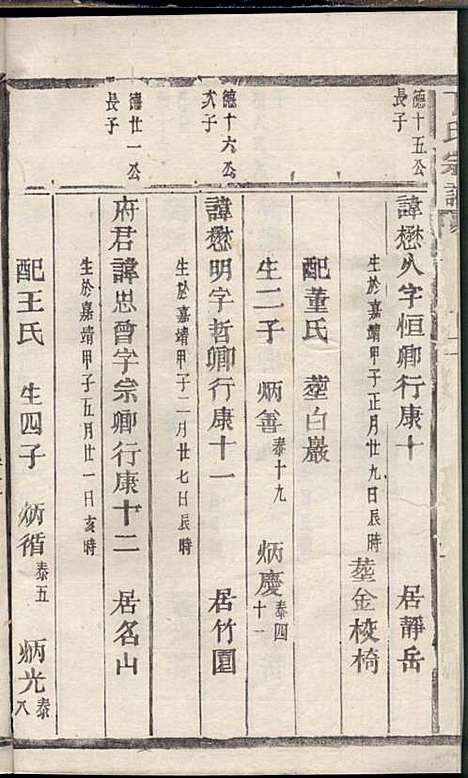 氏宗譜
德十五公
長子
諱懋久字恒卿行康十　居靜岳
生於嘉靖甲子正月廿九日辰時　塟金梭椅
配董氏　塟白巖
生二子　炳善泰十九　炳慶泰四十一
德十六公
次子
諱懋明字哲卿行康十一　居竹園
生於嘉靖甲子二月廿七日辰時
德廿一公
長子
府君諱思曾字宗卿行康十二　居名山
生於嘉靖甲子五月廿一日亥時
配王氏　生四子　炳循泰五　炳光泰八